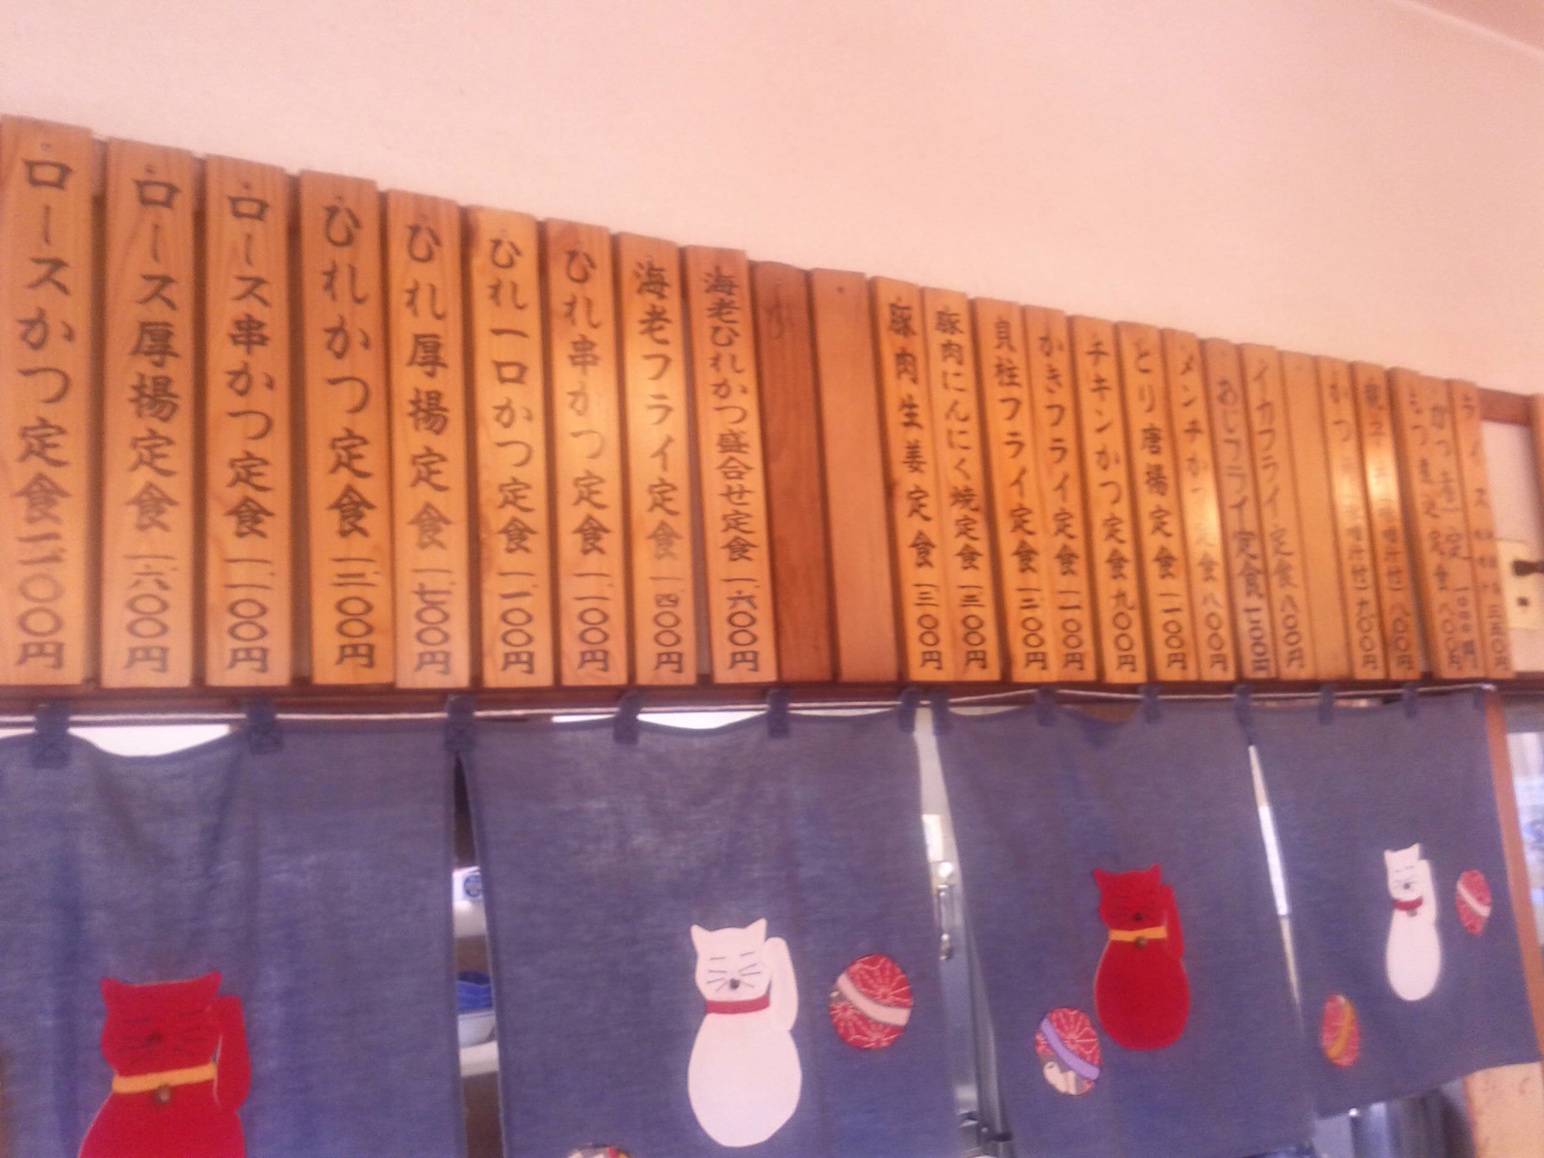 ロースかつ定食一、二〇〇円
ロース厚揚定食一、六〇〇円
ロース串かつ定食一、一〇〇円
ひれかつ定食一、三〇〇円
ひれ厚揚定食一、七〇〇円
ひれ一口かつ定食一、一〇〇円
ひれ串かつ定食一、一〇〇円
海老フライ定食一、四〇〇円
海老ひれかつ盛合せ定食一、六〇〇円
豚肉生姜定食一、三〇〇円
豚肉にんにく焼定食一、三〇〇円
貝柱フライ定食一、二〇〇円
かきフライ定食一、一〇〇円
チキンかつ定食九〇〇円
とり唐揚定食一、一〇〇円
メンチかつ定食八〇〇円
あじフライ定食
イカフライ定食八〇〇円
かつ
ライス